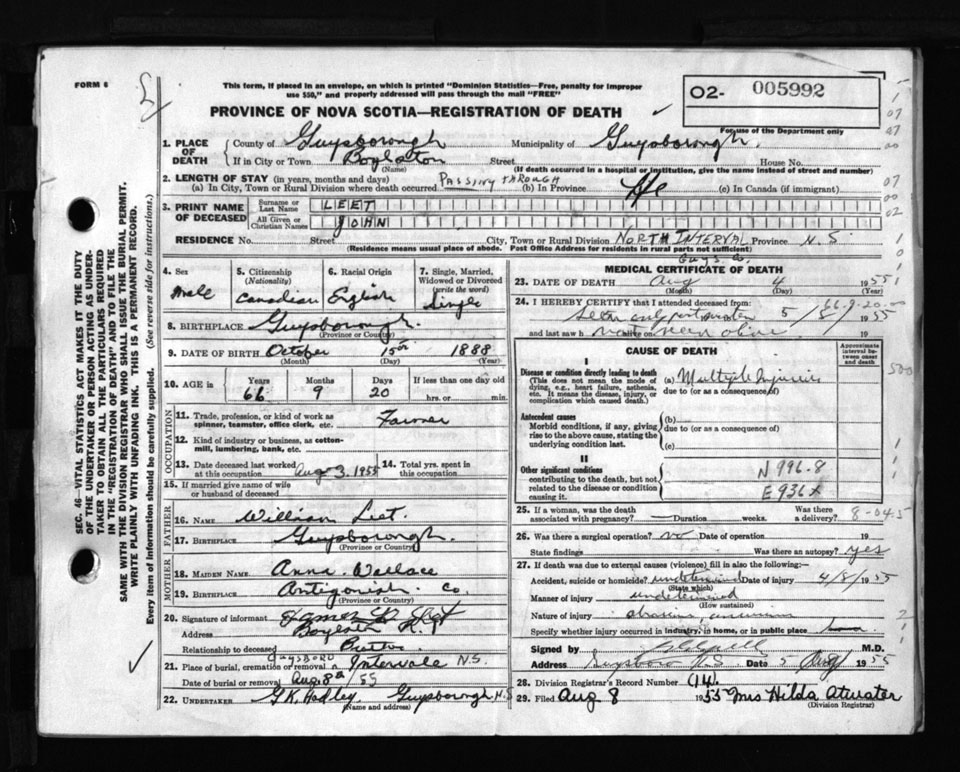 FORM 6
This form, if placed in an envelope, on which is printed "Dominion Statistics—Free, penalty for improper
use $50," and properly addressed will pass through the mail "FREE"
O2- 005992
PROVINCE OF NOVA SCOTIA—REGISTRATION OF DEATH
For use of the Department only
1. PLACE OF DEATH
County of Guysborough Municipality of Guysborough.
If in City or Town Boylston Street House No.
(Name) (If death occurred in a hospital or institution, give the name instead of street and number)
2. LENGTH OF STAY (in years, months and days)
(a) In City, Town or Rural Division where death occurred PASSING THROUGH (b) In Province life (c) In Canada (if immigrant)
3. PRINT NAME OF DECEASED
Surname or Last Name LEET
All Given or Christian Names JOHN
RESIDENCE No. Street City, Town or Rural Division NORTH INTERVAL Province N.S.
(Residence means usual place of abode. Post Office Address for residents in rural parts not sufficient)
Guys. Co.
4. Sex Male
5. Citizenship (Nationality) Canadian
6. Racial Origin English
7. Single, Married, Widowed or Divorced (write the word) Single
8. BIRTHPLACE Guysborough.
(Province or Country)
9. DATE OF BIRTH October 15th 1888
(Month) (Day) (Year)
10. AGE in Years 66 Months 9 Days 20 If less than one day old
hrs. or min.
OCCUPATION
11. Trade, profession, or kind of work as spinner, teamster, office clerk, etc. Farmer
12. Kind of industry or business, as cotton-mill, lumbering, bank, etc.
13. Date deceased last worked at this occupation Aug 3, 1955 14. Total yrs. spent in this occupation
15. If married give name of wife or husband of deceased
FATHER
16. NAME William Leet.
17. BIRTHPLACE Guysborough.
(Province or Country)
MOTHER
18. MAIDEN NAME Anna Wallace
19. BIRTHPLACE Antigonish Co.
(Province or Country)
20. Signature of informant James Leet
Address Boylston
Relationship to deceased
21. Place of burial, cremation or removal GUYSBORO Intervale N.S.
Date of burial or removal Aug. 8th/55
22. UNDERTAKER G.K. Hadley Guysborough N.S
(Name and address)
MEDICAL CERTIFICATE OF DEATH
23. DATE OF DEATH Aug 4 1955
(Month) (Day) (Year)
24. I HEREBY CERTIFY that I attended deceased from: 66-9-20
Seen only postmortem 5/8/1955
and last saw h not seen alive alive on 19
CAUSE OF DEATH
Approximate interval between onset and death
I
Disease or condition directly leading to death
(This does not mean the mode of dying, e.g., heart failure, asthenia, etc. It means the disease, injury, or complication which caused death.)
(a) Multiple Injuries
due to (or as a consequence of)
Antecedent causes
Morbid conditions, if any, giving rise to the above cause, stating the underlying condition last.
(b)
due to (or as a consequence of)
(c)
II
Other significant conditions
contributing to the death, but not related to the disease or condition causing it.
N 996.8
E 936X
25. If a woman, was the death associated with pregnancy? Duration weeks. Was there a delivery?
8-045
26. Was there a surgical operation? no Date of operation 19
State findings Was there an autopsy? yes
27. If death was due to external causes (violence) fill in also the following:—
Accident, suicide or homicide? undetermined Date of injury 4/8/1955
(State which)
Manner of injury undetermined
(How sustained)
Nature of injury
Specify whether injury occurred in industry, in home, or in public place
Signed by M.D.
Address Guysboro N.S Date 5 Aug 1955
28. Division Registrar's Record Number (14)
29. Filed Aug 8 1955 Mrs Hilda Atwater
(Division Registrar)
SEC. 46—VITAL STATISTICS ACT MAKES IT THE DUTY
OF THE UNDERTAKER OR PERSON ACTING AS UNDER-
TAKER TO OBTAIN ALL THE PARTICULARS REQUIRED
IN THE "REGISTRATION OF DEATH" AND TO FILE THE
SAME WITH THE DIVISION REGISTRAR WHO SHALL ISSUE THE BURIAL PERMIT.
WRITE PLAINLY WITH UNFADING INK. THIS IS A PERMANENT RECORD.
Every item of information should be carefully supplied. (See reverse side for instructions.)